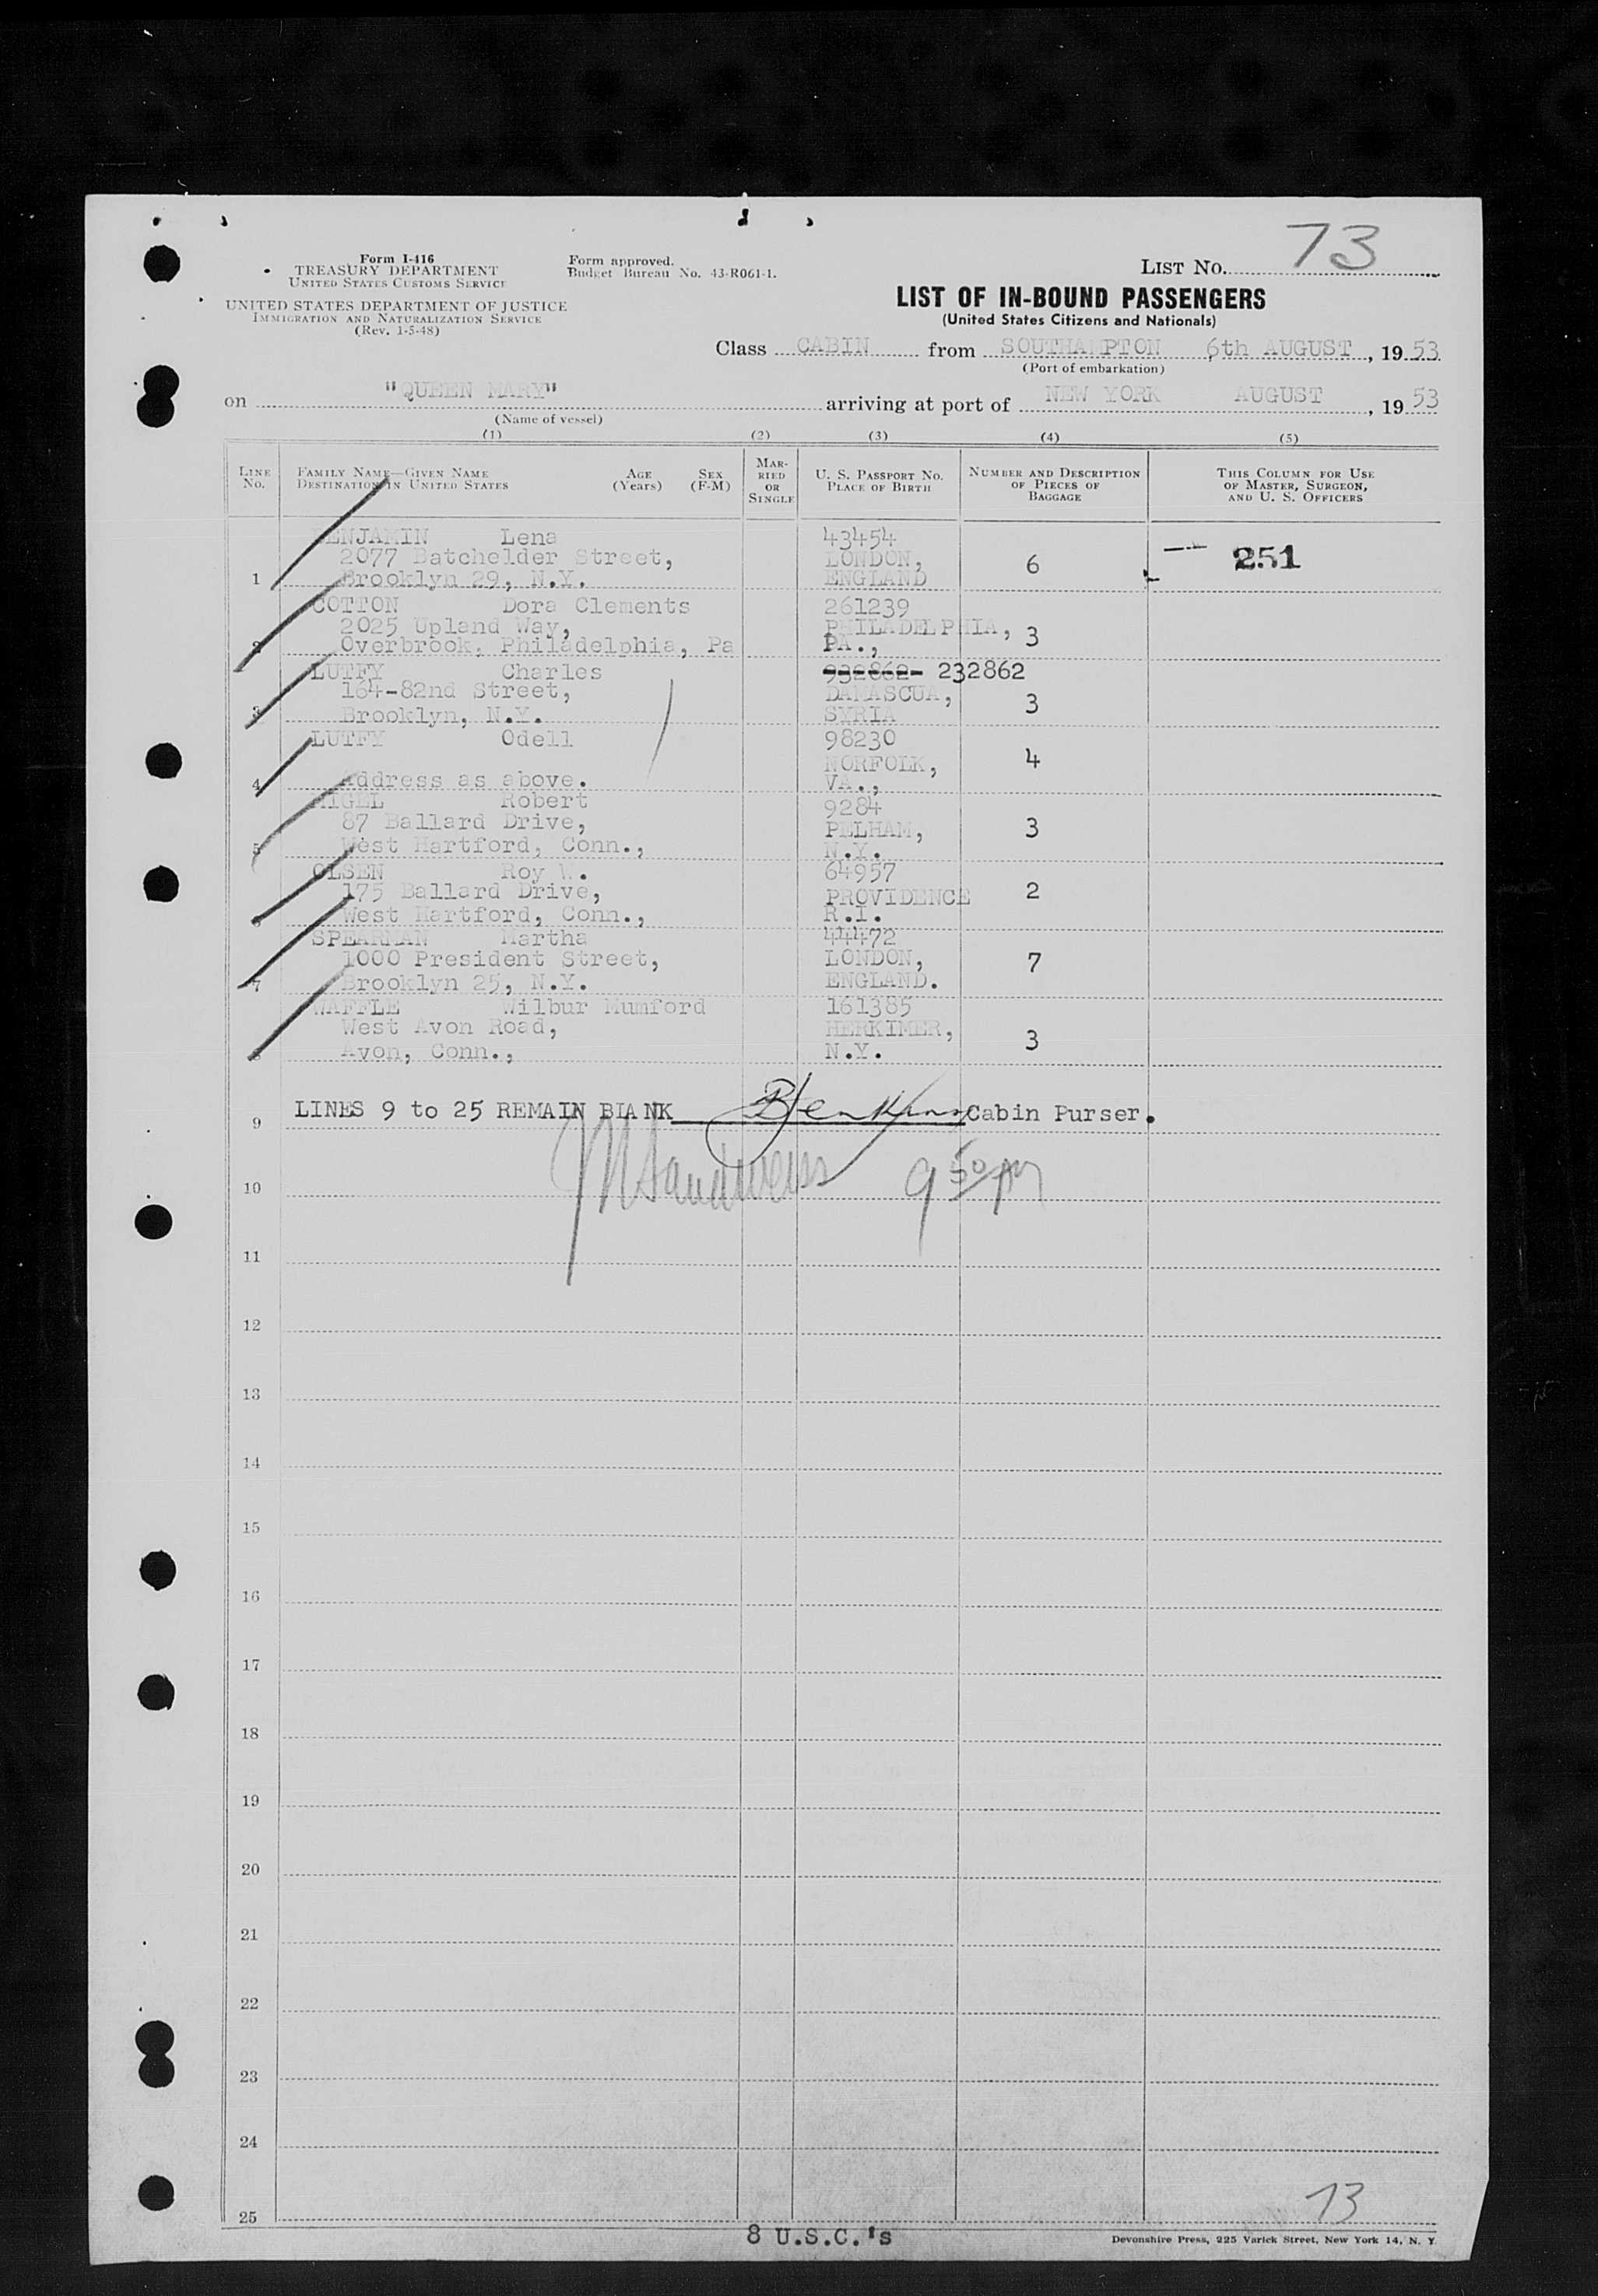 Form I-416
TREASURY DEPARTMENT
UNITED STATES CUSTOMS SERVICE
UNITED STATES DEPARTMENT OF JUSTICE
IMMIGRATION AND NATURALIZATION SERVICE
(Rev. 1-5-48)
Form approved.
Budget Bureau No. 43-R061-1.
LIST NO. 73
LIST OF IN-BOUND PASSENGERS
(United States Citizens and Nationals)
Class CABIN from SOUTHAMPTON 6th AUGUST, 1953
(Port of embarkation)
on "QUEEN MARY" arriving at port of NEW YORK AUGUST, 1953
(Name of vessel)
(1) (2) (3) (4) (5)
LINE NO. FAMILY NAME—GIVEN NAME DESTINATION IN UNITED STATES AGE (Years) SEX (F-M) MARRIED OR SINGLE U. S. PASSPORT NO. PLACE OF BIRTH NUMBER AND DESCRIPTION OF PIECES OF BAGGAGE THIS COLUMN FOR USE OF MASTER, SURGEON, AND U. S. OFFICERS
BENJAMIN Lena 43454
2077 Batchelder Street, LONDON, 6 251
1 Brooklyn 29, N.Y. ENGLAND
COTTON Dora Clements 261239
2025 Upland Way, PHILADELPHIA, 3
2 Overbrook, Philadelphia, Pa PA.,
LUTFY Charles 932862- 232862
164-82nd Street, DAMASCUA, 3
3 Brooklyn, N.Y. SYRIA
LUTFY Odell 98230
NORFOLK, 4
4 Address as above. VA.,
NIGEL Robert 9284
87 Ballard Drive, PELHAM, 3
5 West Hartford, Conn., N.Y.
OLSEN Roy W. 64957
175 Ballard Drive, PROVIDENCE 2
6 West Hartford, Conn., R.I.
SPEARMAN Martha 44472
1000 President Street, LONDON, 7
7 Brooklyn 25, N.Y. ENGLAND.
WAFFLE Wilbur Mumford 161385
West Avon Road, HERKIMER, 3
8 Avon, Conn., N.Y.
9 LINES 9 to 25 REMAIN BLANK Cabin Purser.
10 9 50 PM
11
12
13
14
15
16
17
18
19
20
21
22
23
24
25
73
8 U.S.C.'s
Devonshire Press, 225 Varick Street, New York 14, N. Y.